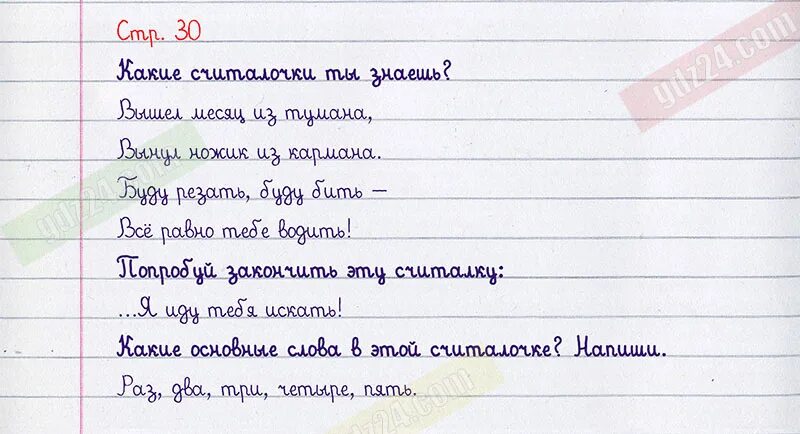 Стр. 30
Какие считалочки ты знаешь?
Вышел месяц из тумана,
Вынул ножик из кармана.
Буду резать, буду бить –
Всё равно тебе водить!
Попробуй закончить эту считалку:
...Я иду тебя искать!
Какие основные слова в этой считалочке? Напиши.
Раз, два, три, четыре, пять.
ydz24.com
ydz24.com
ydz24.com